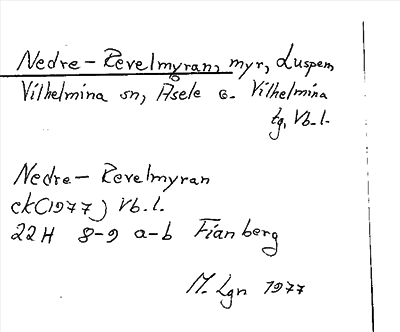 Nedre-Revelmyran, myr, Luspen,
Vilhelmina sn, Åsele o. Vilhelmina
tg, Vb. l.
Nedre- Revelmyran
ek (1977) Vb. l.
22H 8-9 a-b Fianberg
M. Lgn 1977